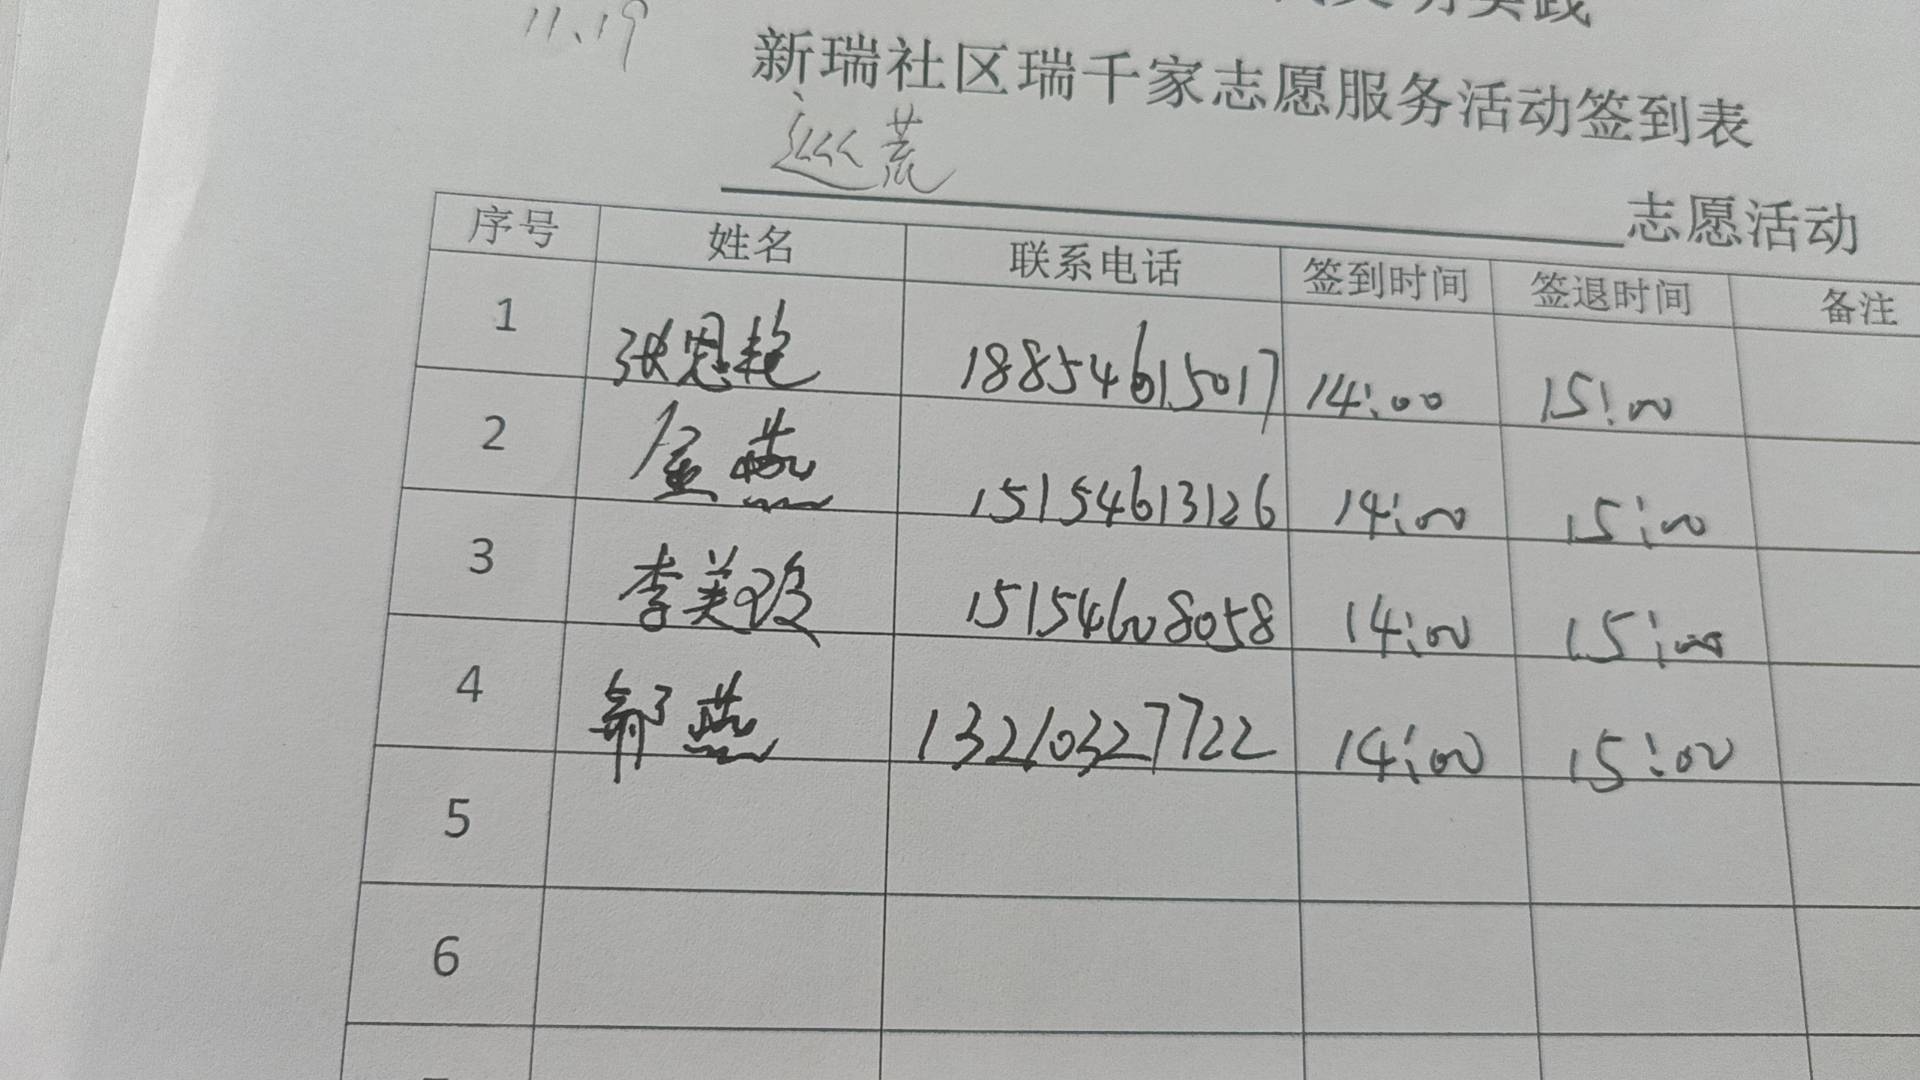 11.19
文明实践
新瑞社区瑞千家志愿服务活动签到表
巡荒 志愿活动
序号 姓名 联系电话 签到时间 签退时间 备注
1 张恩艳 18854615017 14:00 15:00
2 金燕 15154613126 14:00 15:00
3 李美玲 15154608058 14:00 15:00
4 郇燕 13210327722 14:00 15:00
5
6